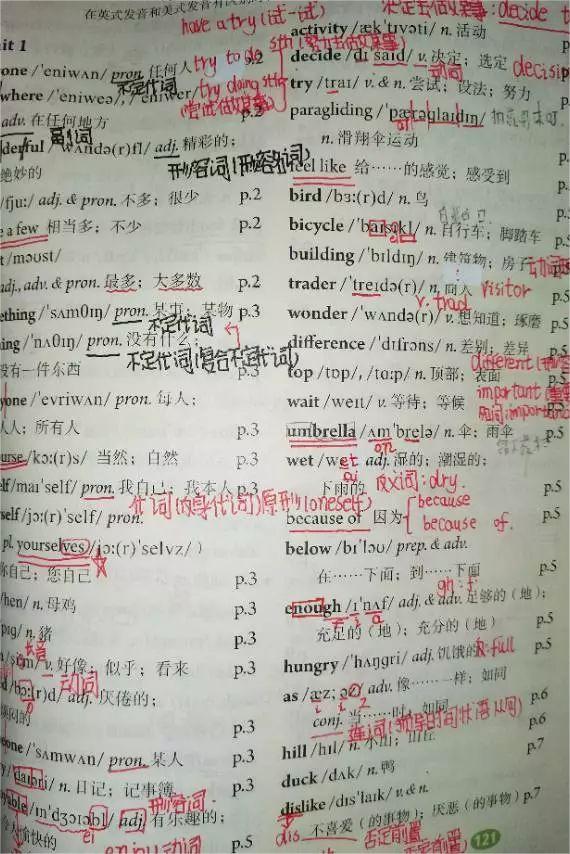 在英式发音和美式发音有
it 1
one /'eniwʌn/ pron. 任何人 p.2
where /'eniweə/, /'eniwer/
adv. 在任何地方 p.2
derful /'wʌndə(r)fl/ adj. 精彩的；
绝妙的
/fju:/ adj. & pron. 不多；很少 p.2
e a few 相当多；不少 p.2
t /məʊst/
adj., adv. & pron. 最多；大多数 p.2
ething /'sʌmθɪŋ/ pron. 某事；某物 p.3
ing /'nʌθɪŋ/ pron. 没有什么；
没有一件东西 p.3
yone /'evriwʌn/ pron. 每人；
人人；所有人 p.3
urse /kɔ:(r)s/ 当然；自然 p.3
elf /maɪ'self/ pron. 我自己；我本人 p.3
self /jɔ:(r)'self/ pron.
pl. yourselves /jɔ:(r)'selvz/ )
你自己；您自己 p.3
/hen/ n. 母鸡 p.3
/pɪg/ n. 猪 p.3
v. 好像；似乎；看来 p.3
/bɔ:(r)d/ adj. 厌倦的；
烦闷的 p.3
eone /'sʌmwʌn/ pron. 某人 p.3
/daɪəri/ n. 日记；记事簿 p.3
yable /ɪn'dʒɔɪəbl/ adj. 有乐趣的；
令人愉快的 p.5
activity /æk'tɪvəti/ n. 活动
decide /dɪ'saɪd/ v. 决定；选定
try /traɪ/ v. & n. 尝试；设法；努力
paragliding /'pærəglaɪdɪŋ/
n. 滑翔伞运动
feel like 给……的感觉；感受到
bird /bɜ:(r)d/ n. 鸟
bicycle /'baɪsɪkl/ n. 自行车；脚踏车
building /'bɪldɪŋ/ n. 建筑物；房子
trader /'treɪdə(r)/ n. 商人
wonder /'wʌndə(r)/ v. 想知道；琢磨
difference /'dɪfrəns/ n. 差别；差异
top /tɒp/, /tɑ:p/ n. 顶部；表面
wait /weɪt/ v. 等待；等候
umbrella /ʌm'brelə/ n. 伞；雨伞
wet /wet/ adj. 湿的；潮湿的；
下雨的 p.5
because of 因为 p.5
below /bɪ'ləʊ/ prep. & adv.
在……下面；到……下面 p.5
enough /ɪ'nʌf/ adj. & adv. 足够的（地）；
充足的（地）；充分的（地） p.5
hungry /'hʌŋgri/ adj. 饥饿的 p.5
as /æz; əz/ adv. 像……一样；如同
conj. 当……时；如同 p.6
hill /hɪl/ n. 小山；山丘 p.6
duck /dʌk/ n. 鸭 p.7
dislike /dɪs'laɪk/ v. & n.
不喜爱（的事物）；厌恶（的事物） p.7
121
have a try (试一试)
try to do sth (努力去做某事)
try doing sth
(尝试做某事)
不定代词
副词
形容词 (形容名词)
不定代词
不定代词 (复合不定代词)
代词 (反身代词) 原形 (oneself)
动词
形容词
ei
enjoy 动词
decide t
动词
decisi
visitor
v. trad
different
important
importan
反义词: dry.
because
because of.
gh: f
full
连词 (引导时间状语从句)
dis
否定前缀